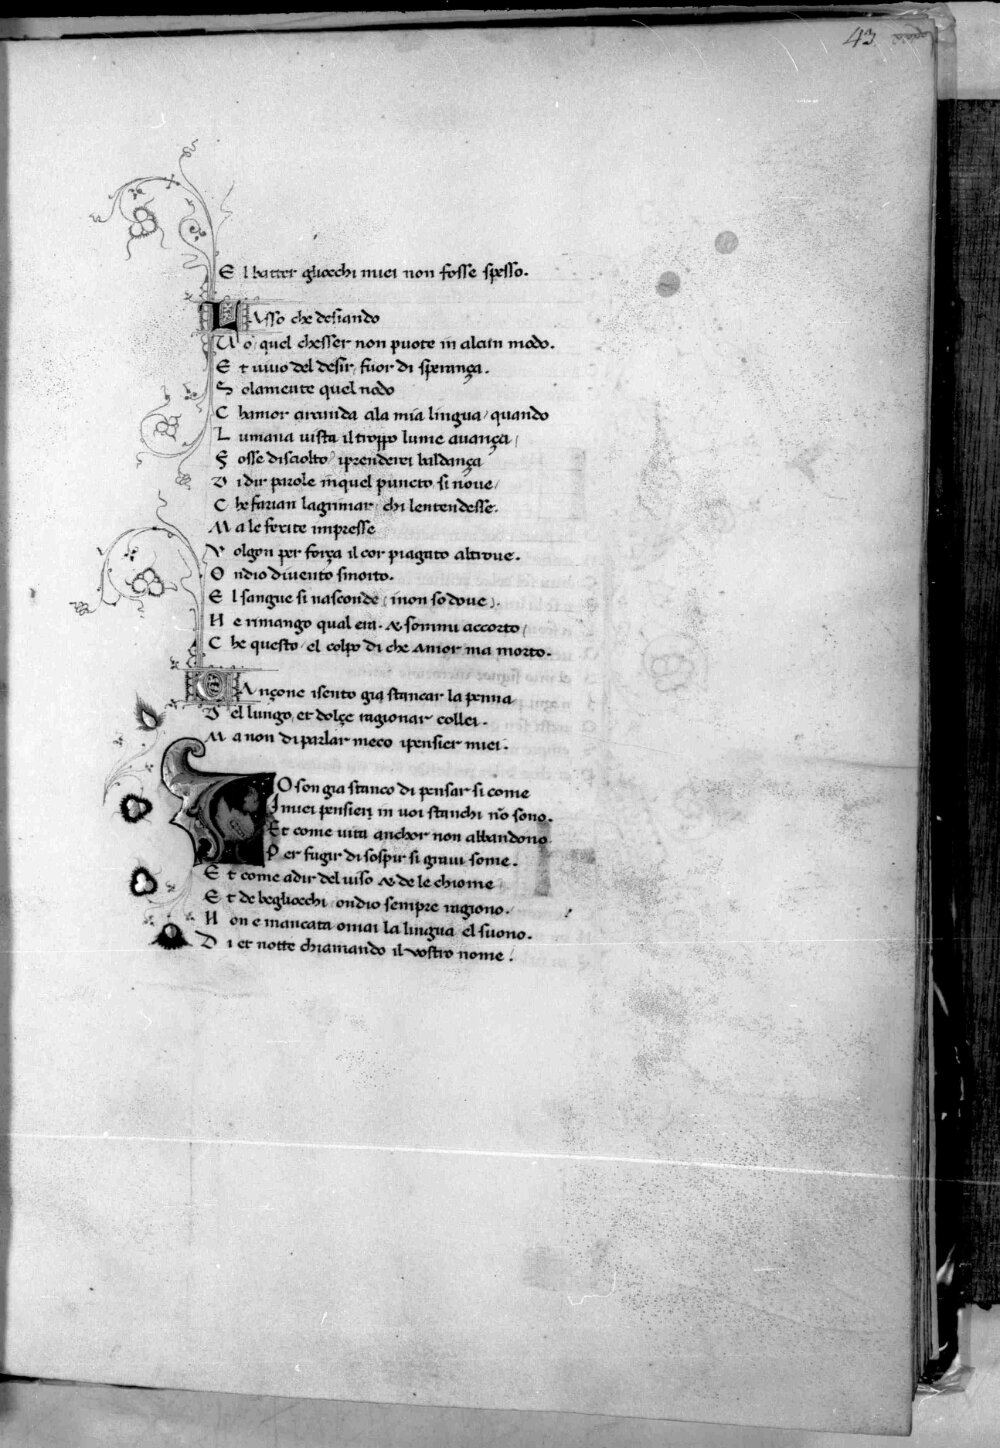 43
E l batter gliocchi miei non fosse spesso.
LAsso che desiando
U o, quel chesser non puote in alcun modo.
E t uiuo del desir, fuor di sperança.
S olamente quel nodo
C hamor circunda ala mia lingua, quando
L umana uista il troppo lume auança,
F osse disciolto, iprenderei baldança
D i dir parole inquel puncto, si noue,
C he farian lagrimar, chi lentendesse.
M a le ferite impresse
V olgon per força il cor piagato altroue.
O ndio diuento smorto.
E l sangue si nasconde, inon so doue,
N e rimango qual era. & sommi accorto,
C he questo, el colpo di che amor ma morto.
CAnçone isento gia stancar la penna
D el lungo, et dolçe ragionar collei.
M a non di parlar meco ipensier miei.
IO son gia stanco di pensar si come
I miei pensieri in uoi stanchi nō sono.
Et come uita anchor non abbandono
P er fugir di sospir si graui some.
E t come adir del uiso & de le chiome
E t de begliocchi, ondio sempre ragiono.
N on e mancata omai la lingua, el suono.
D i et notte chiamando il vostro nome.